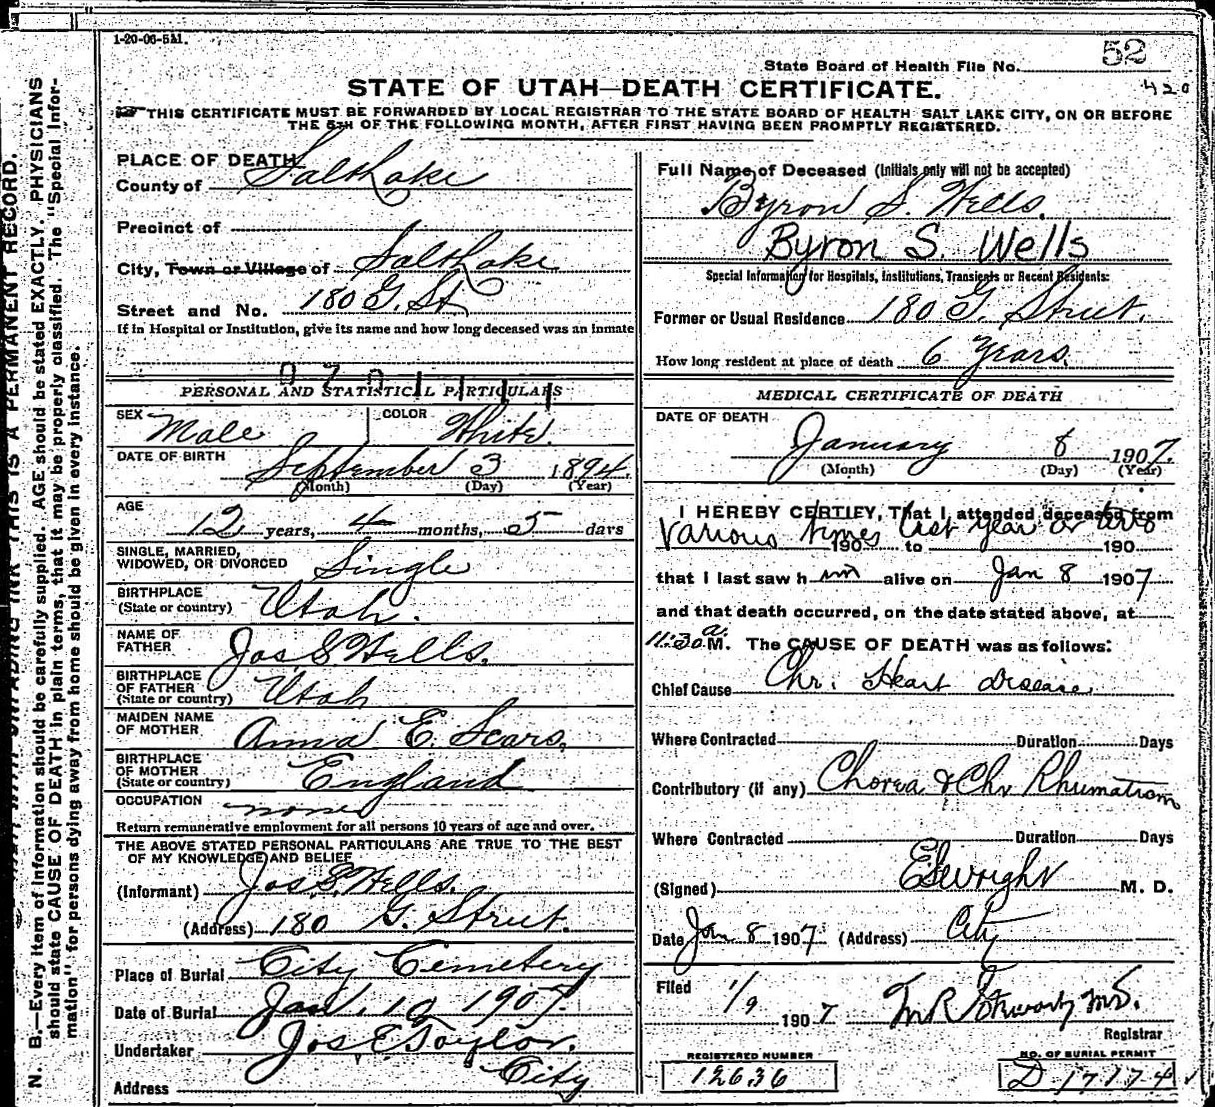 1-20-06-5M.
52
State Board of Health File No.
420
STATE OF UTAH—DEATH CERTIFICATE.
THIS CERTIFICATE MUST BE FORWARDED BY LOCAL REGISTRAR TO THE STATE BOARD OF HEALTH SALT LAKE CITY, ON OR BEFORE
THE 5TH OF THE FOLLOWING MONTH, AFTER FIRST HAVING BEEN PROMPTLY REGISTERED.
PLACE OF DEATH
County of Salt Lake
Precinct of
City, Town or Village of Salt Lake
Street and No. 180 G. St.
If in Hospital or Institution, give its name and how long deceased was an inmate
PERSONAL AND STATISTICAL PARTICULARS
SEX Male COLOR White.
DATE OF BIRTH September 3 1894
(Month) (Day) (Year)
AGE
12 years, 4 months, 5 days
SINGLE, MARRIED,
WIDOWED, OR DIVORCED Single
BIRTHPLACE
(State or country) Utah.
NAME OF
FATHER Jos. S Wells.
BIRTHPLACE
OF FATHER
(State or country) Utah
MAIDEN NAME
OF MOTHER Anna E. Sears,
BIRTHPLACE
OF MOTHER
(State or country) England
OCCUPATION none
Return remunerative employment for all persons 10 years of age and over.
THE ABOVE STATED PERSONAL PARTICULARS ARE TRUE TO THE BEST
OF MY KNOWLEDGE AND BELIEF
(Informant) Jos. S. Wells.
(Address) 180 G. Street.
Place of Burial City Cemetery
Date of Burial Jan. 10 1907.
Undertaker Jos E. Taylor.
Address City
Full Name of Deceased (Initials only will not be accepted)
Byron S. Wells.
Byron S. Wells
Special Information for Hospitals, Institutions, Transients or Recent Residents:
Former or Usual Residence 180 G. Street.
How long resident at place of death 6 Years.
MEDICAL CERTIFICATE OF DEATH
DATE OF DEATH
January 8 1907.
(Month) (Day) (Year)
I HEREBY CERTIFY, That I attended deceased from
Various times last year or two
190 to 190
that I last saw him alive on Jan 8 1907
and that death occurred, on the date stated above, at
11:30 a. M. The CAUSE OF DEATH was as follows:
Chief Cause Chr. Heart disease
Where Contracted Duration Days
Contributory (if any) Chorea & Chr Rhumatism
Where Contracted Duration Days
(Signed) M. D.
Date Jan 8 1907 (Address) City
Filed 1/9 1907
Registrar
REGISTERED NUMBER
12636
NO. OF BURIAL PERMIT
D 17174
N. B.—Every item of information should be carefully supplied. AGE should be stated EXACTLY. PHYSICIANS
should state CAUSE OF DEATH in plain terms, that it may be properly classified. The "Special Infor-
mation" for persons dying away from home should be given in every instance.
THIS IS A PERMANENT RECORD.